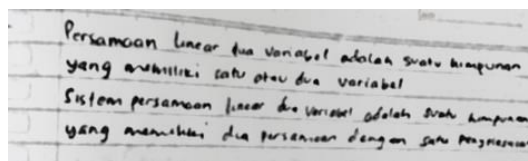 Persamaan linear dua variabel adalah suatu himpunan
yang memiliki satu atau dua variabel
Sistem persamaan linear dua variabel adalah suatu himpunan
yang memiliki dua persamaan dengan satu penyelesaian